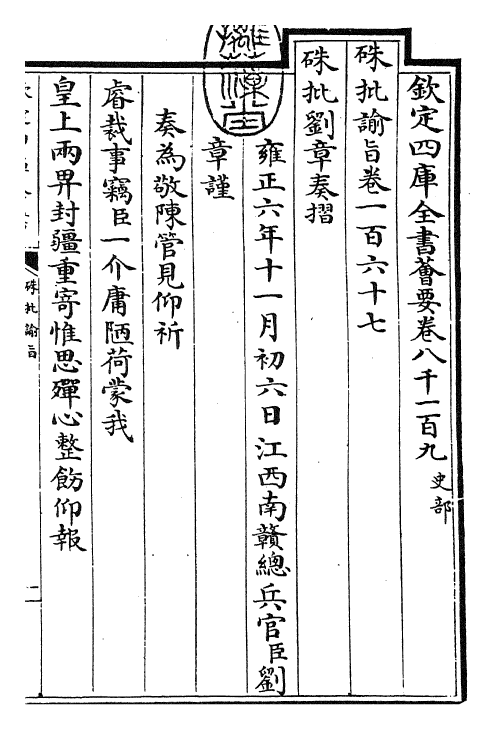 欽定四庫全書薈要卷八千一百九 史部
硃批諭旨卷一百六十七
硃批劉章奏摺
雍正六年十一月初六日江西南贛總兵官臣劉
章謹
奏為敬陳管見仰祈
睿裁事竊臣一介庸陋荷蒙我
皇上兩畀封疆重寄惟思殫心整飭仰報
硃批諭旨
一